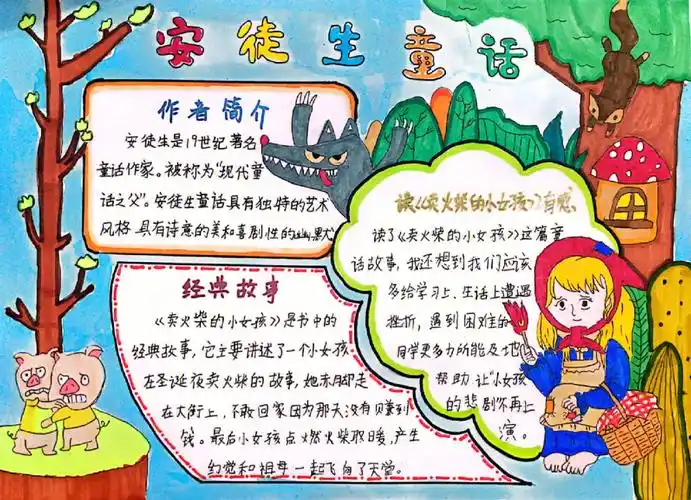 安徒生童话
作者简介
安徒生是19世纪著名
童话作家。被称为“现代童
话之父”。安徒生童话具有独特的艺术
风格,具有诗意的美和喜剧性的幽默
经典故事
《卖火柴的小女孩》是书中的
经典故事,它主要讲述了一个小女孩
在圣诞夜卖火柴的故事,她赤脚走
在大街上,不敢回家因为那天没有赚到
钱。最后小女孩点燃火柴取暖,产生
幻觉和祖母一起飞向了天堂。
读《卖火柴的小女孩》有感
读了《卖火柴的小女孩》这篇童
话故事,我还想到我们应该
多给学习上、生活上遭遇
挫折,遇到困难的
同学更多力所能及地
帮助,让“小女孩
的悲剧不再上
演。